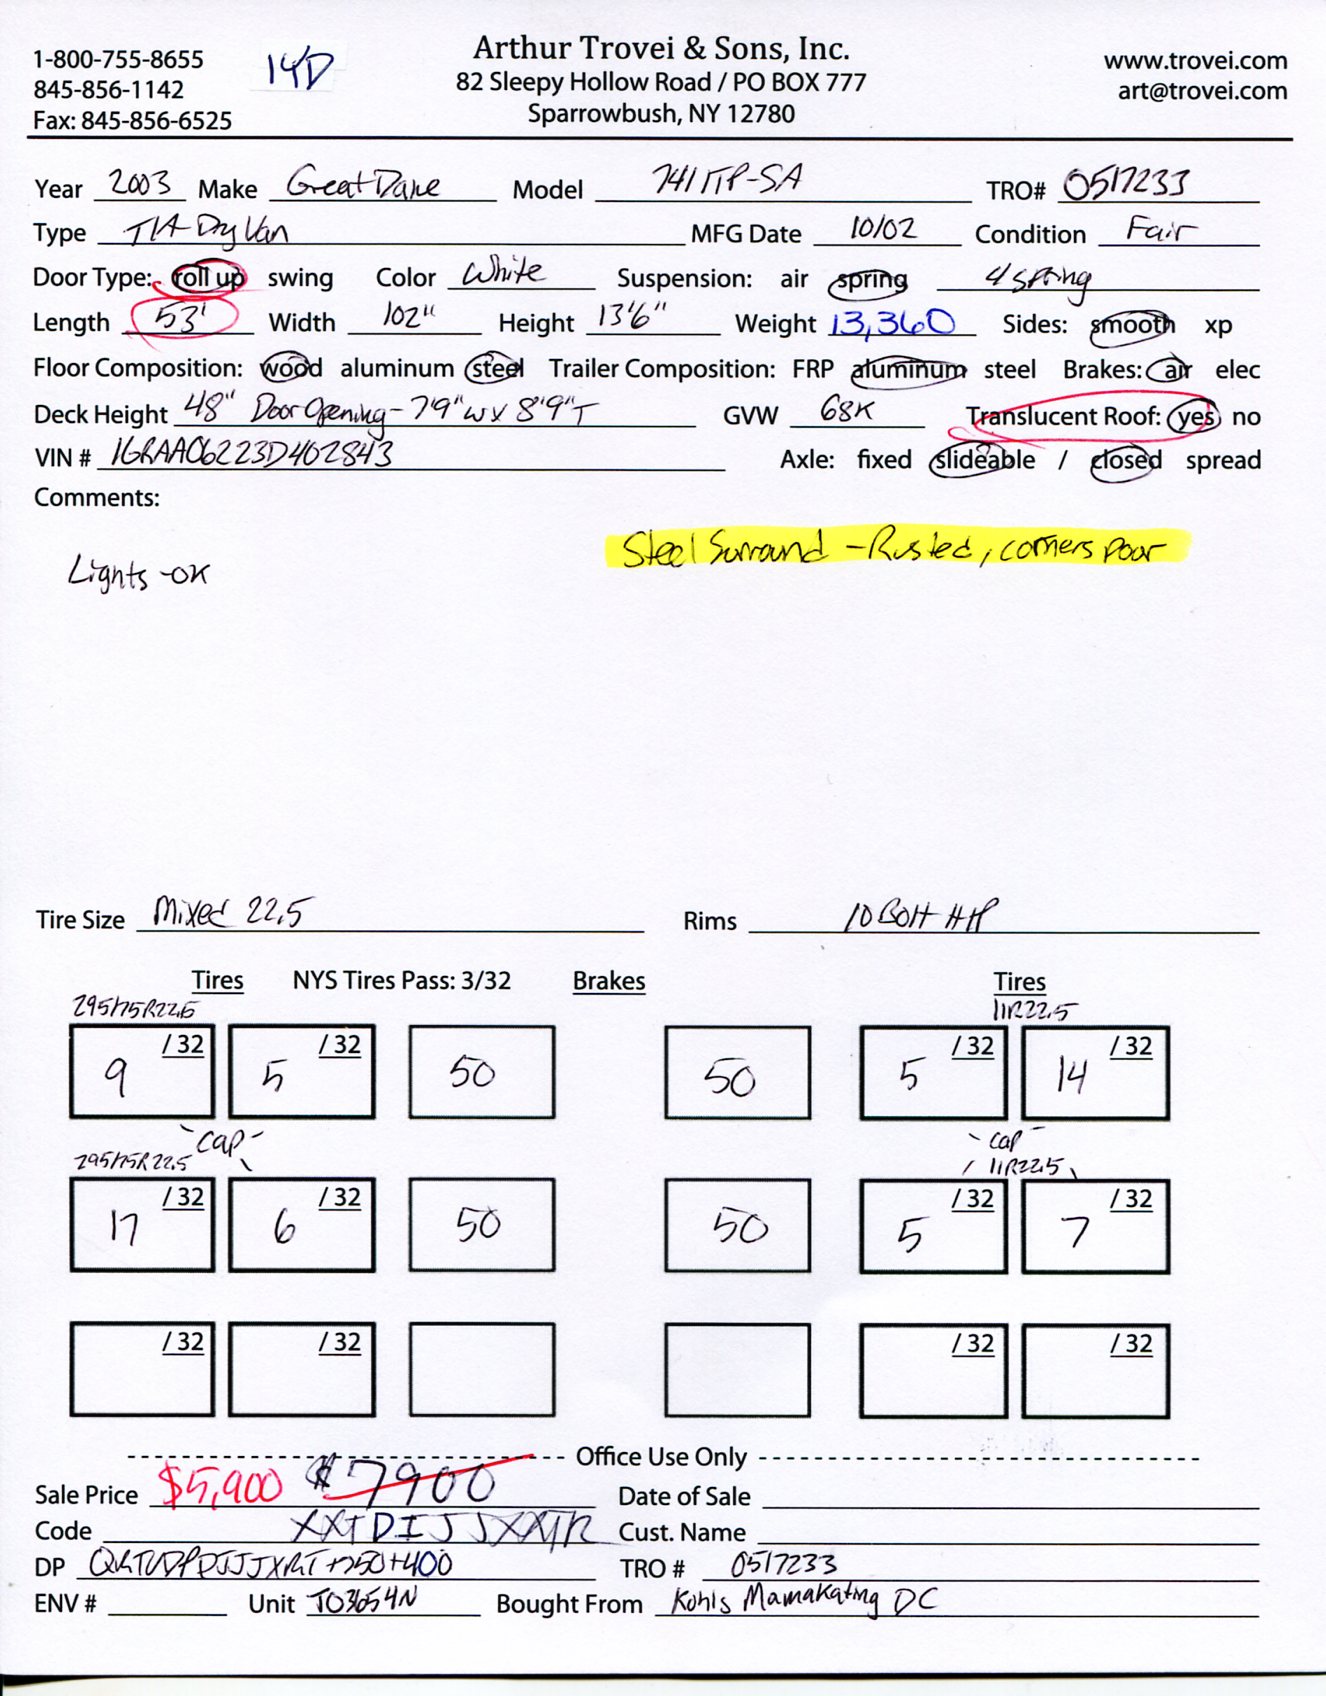 1-800-755-8655
845-856-1142
Fax: 845-856-6525
14D
Arthur Trovei & Sons, Inc.
82 Sleepy Hollow Road / PO BOX 777
Sparrowbush, NY 12780
www.trovei.com
art@trovei.com
Year 2003 Make Great Dane Model 7411TP-SA TRO# 0517233
Type T/A Dry Van MFG Date 10/02 Condition Fair
Door Type: roll up swing Color White Suspension: air spring 4 spring
Length 53' Width 102" Height 13'6" Weight 13,360 Sides: smooth xp
Floor Composition: wood aluminum steel Trailer Composition: FRP aluminum steel Brakes: air elec
Deck Height 48" Door Opening - 7'9"W x 8'9"T GVW 68K Translucent Roof: yes no
VIN # 1GRAA06223D402843 Axle: fixed slideable / closed spread
Comments:
Steel Surround - Rusted, corners poor
Lights - OK
Tire Size Mixed 22.5 Rims 10 Bolt HP
Tires NYS Tires Pass: 3/32 Brakes Tires
295/75R22.5 11R22.5
9 /32 5 /32 50 50 5 /32 14 /32
- cap - - cap -
295/75R22.5 11R22.5
17 /32 6 /32 50 50 5 /32 7 /32
/32 /32 /32 /32
Office Use Only
Sale Price $5,900 $7900 Date of Sale
Code Cust. Name
DP +250+400 TRO # 0517233
ENV # Unit T03654N Bought From Kohls Mamakating DC